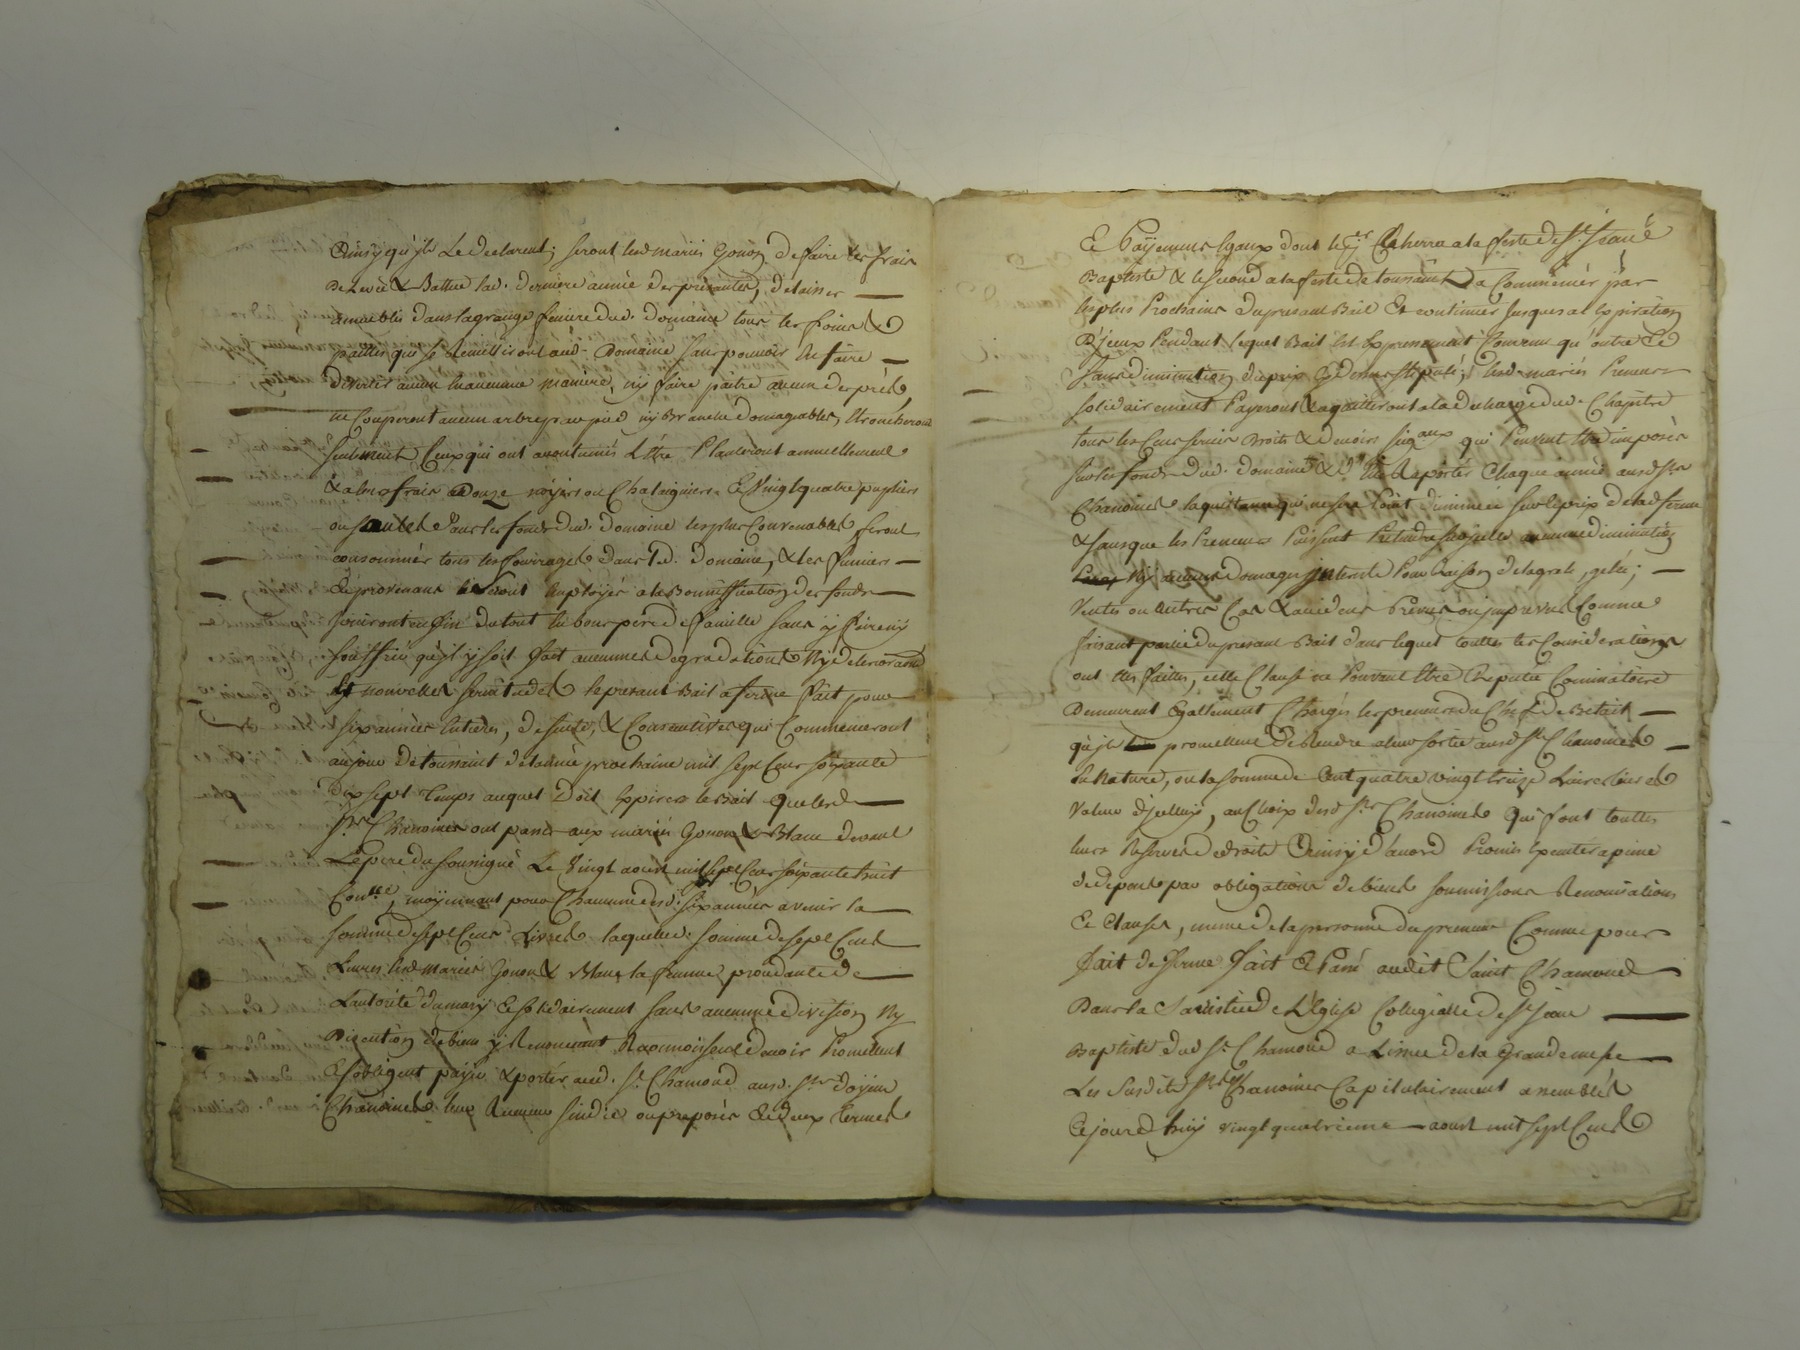 Ainsy qu'ils Le declarent; seront lesd mariés Gonon de faire les frais
De Levée & Battue lad. derniere année des presantes, delaisser
amueblés dans la grange feniere dud. domaine tous les foins &
pailles qui se Remettront aud. Domaine sans pouvoir les faire
divertir aucunement maniere, ny faire paître aucun des prés,
ne Couperont aucun arbres par pied ny Branche domageables, Ebroncheront
seulement Ceux qui ont acoutumés L'être Planteront annuellement
& a leurs frais Douze noyers ou Chataigniers Et Vingt quatre pupliers
ou saules Dans les fonds dud. domaine les plus Convenables, feront
consommer tous les fourrages dans led. domaine, & les fumiers
En provenant seront Employés a la Bonnification des fonds
Jouiront en fin du tout En bons pere de famille sans y faire ny
souffrir qu'il y soit fait aucunnes degradations Ny deteriorations
Et nouvelles servitudes le presant Bail a ferme fait pour
six années Entieres, de suite, & Consecutives qui Commenceront
au jour de toussaint de l'année prochaine mil sept Cens soixante
Dix sept temps auquel Doit Expirer le Bail que lesd
Srs Chanoines ont passé aux mariés Gonon & Blanc devant
Le pere du soussigné Le Vingt aoust mil sept Cens soixante huit
Conllé, moyennant pour Chacunne desd. six années a venir la
somme de sept Cens Livres laquelle somme de sept Cens
Livres lesd mariés Gonon & Blanc la femme procedante de
L'autorité du mary Et solidairement sans aucunne division Ny
Discution de biens y Renoncant Reconnoissent devoir Promettent
Et s'obligent payer & porter aud. St. Chamond ausd. Srs doyen
Chanoines leur Receveur sindic ou preposés En deux termes
Et Payements Egaux dont le 1er Echerra a la feste de St. Jean
Baptiste & le second a la feste de toussaint a Commencer par
les plus Prochains du presant Bail Et continuer Jusques a l'Expiration
D'jceux Pendant lequel Bail Est Expressement Convenu qu'outre Et
sans diminution du prix Cy dessus stipulé, lesd mariés Preneurs
solidairement Payeront & aquitteront a la decharge dud. Chapitre
tous les Cens servis Droits & devoirs seigaux qui Peuvent Etre imposés
sur les fonds dud. domaine & d'En Reporter Chaque année ausd Srs
Chanoines la quittance qui ne sera Point diminuée sur le prix de lad ferme
& sans que les Preneurs Puissent Pretendre sur jcelle aucunne diminution
Ny aucuns domages jnterets Pour Raison de la grele, gelée;
Vents ou autres Cas & accidens Prevus ou jmprevus Comme
faisant partie du presant Bail dans lequel touttes les Considerations
ont Eté faittes, cette Clause ne Pouvant Etre Reputée Comminatoire
Demeurent Egallement Chargés les preneurs du Chef de Betail
qu'jls promettent de Rendre a leur sortie ausd Srs Chanoines
En Nature, ou la somme de Cent quatre vingt treize Livres Livres
Valeur d'jcelluy, au Choix desd Srs Chanoines qui font touttes
leurs Reserves de droits Ainsy d'acord Promis Executer a peine
de depens par obligations de biens soumissions Renonciations
Et Clauses, meme de la personne du preneur Comme pour
fait de ferme fait Et Passé audit Saint Chamond
Dans la Sacristie de L'Eglise Collegialle de St Jean
Baptiste dud St. Chamond a L'issue de la Grande messe
Les Susdits Srs Chanoines Capitulairement assemblés
Ce jourd'huy vingt quatrieme aoust mil sept Cens